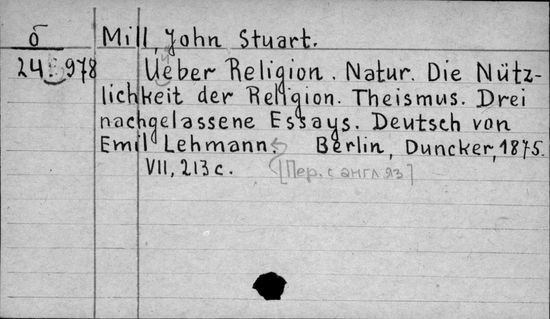 б Mill, John Stuart.
24 978 Ueber Religion. Natur. Die Nütz-
lichkeit der Religion. Theismus. Drei
nachgelassene Essays. Deutsch von
Emil Lehmann. Berlin, Duncker, 1875.
VII, 213 с. [Пер. с англ яз]